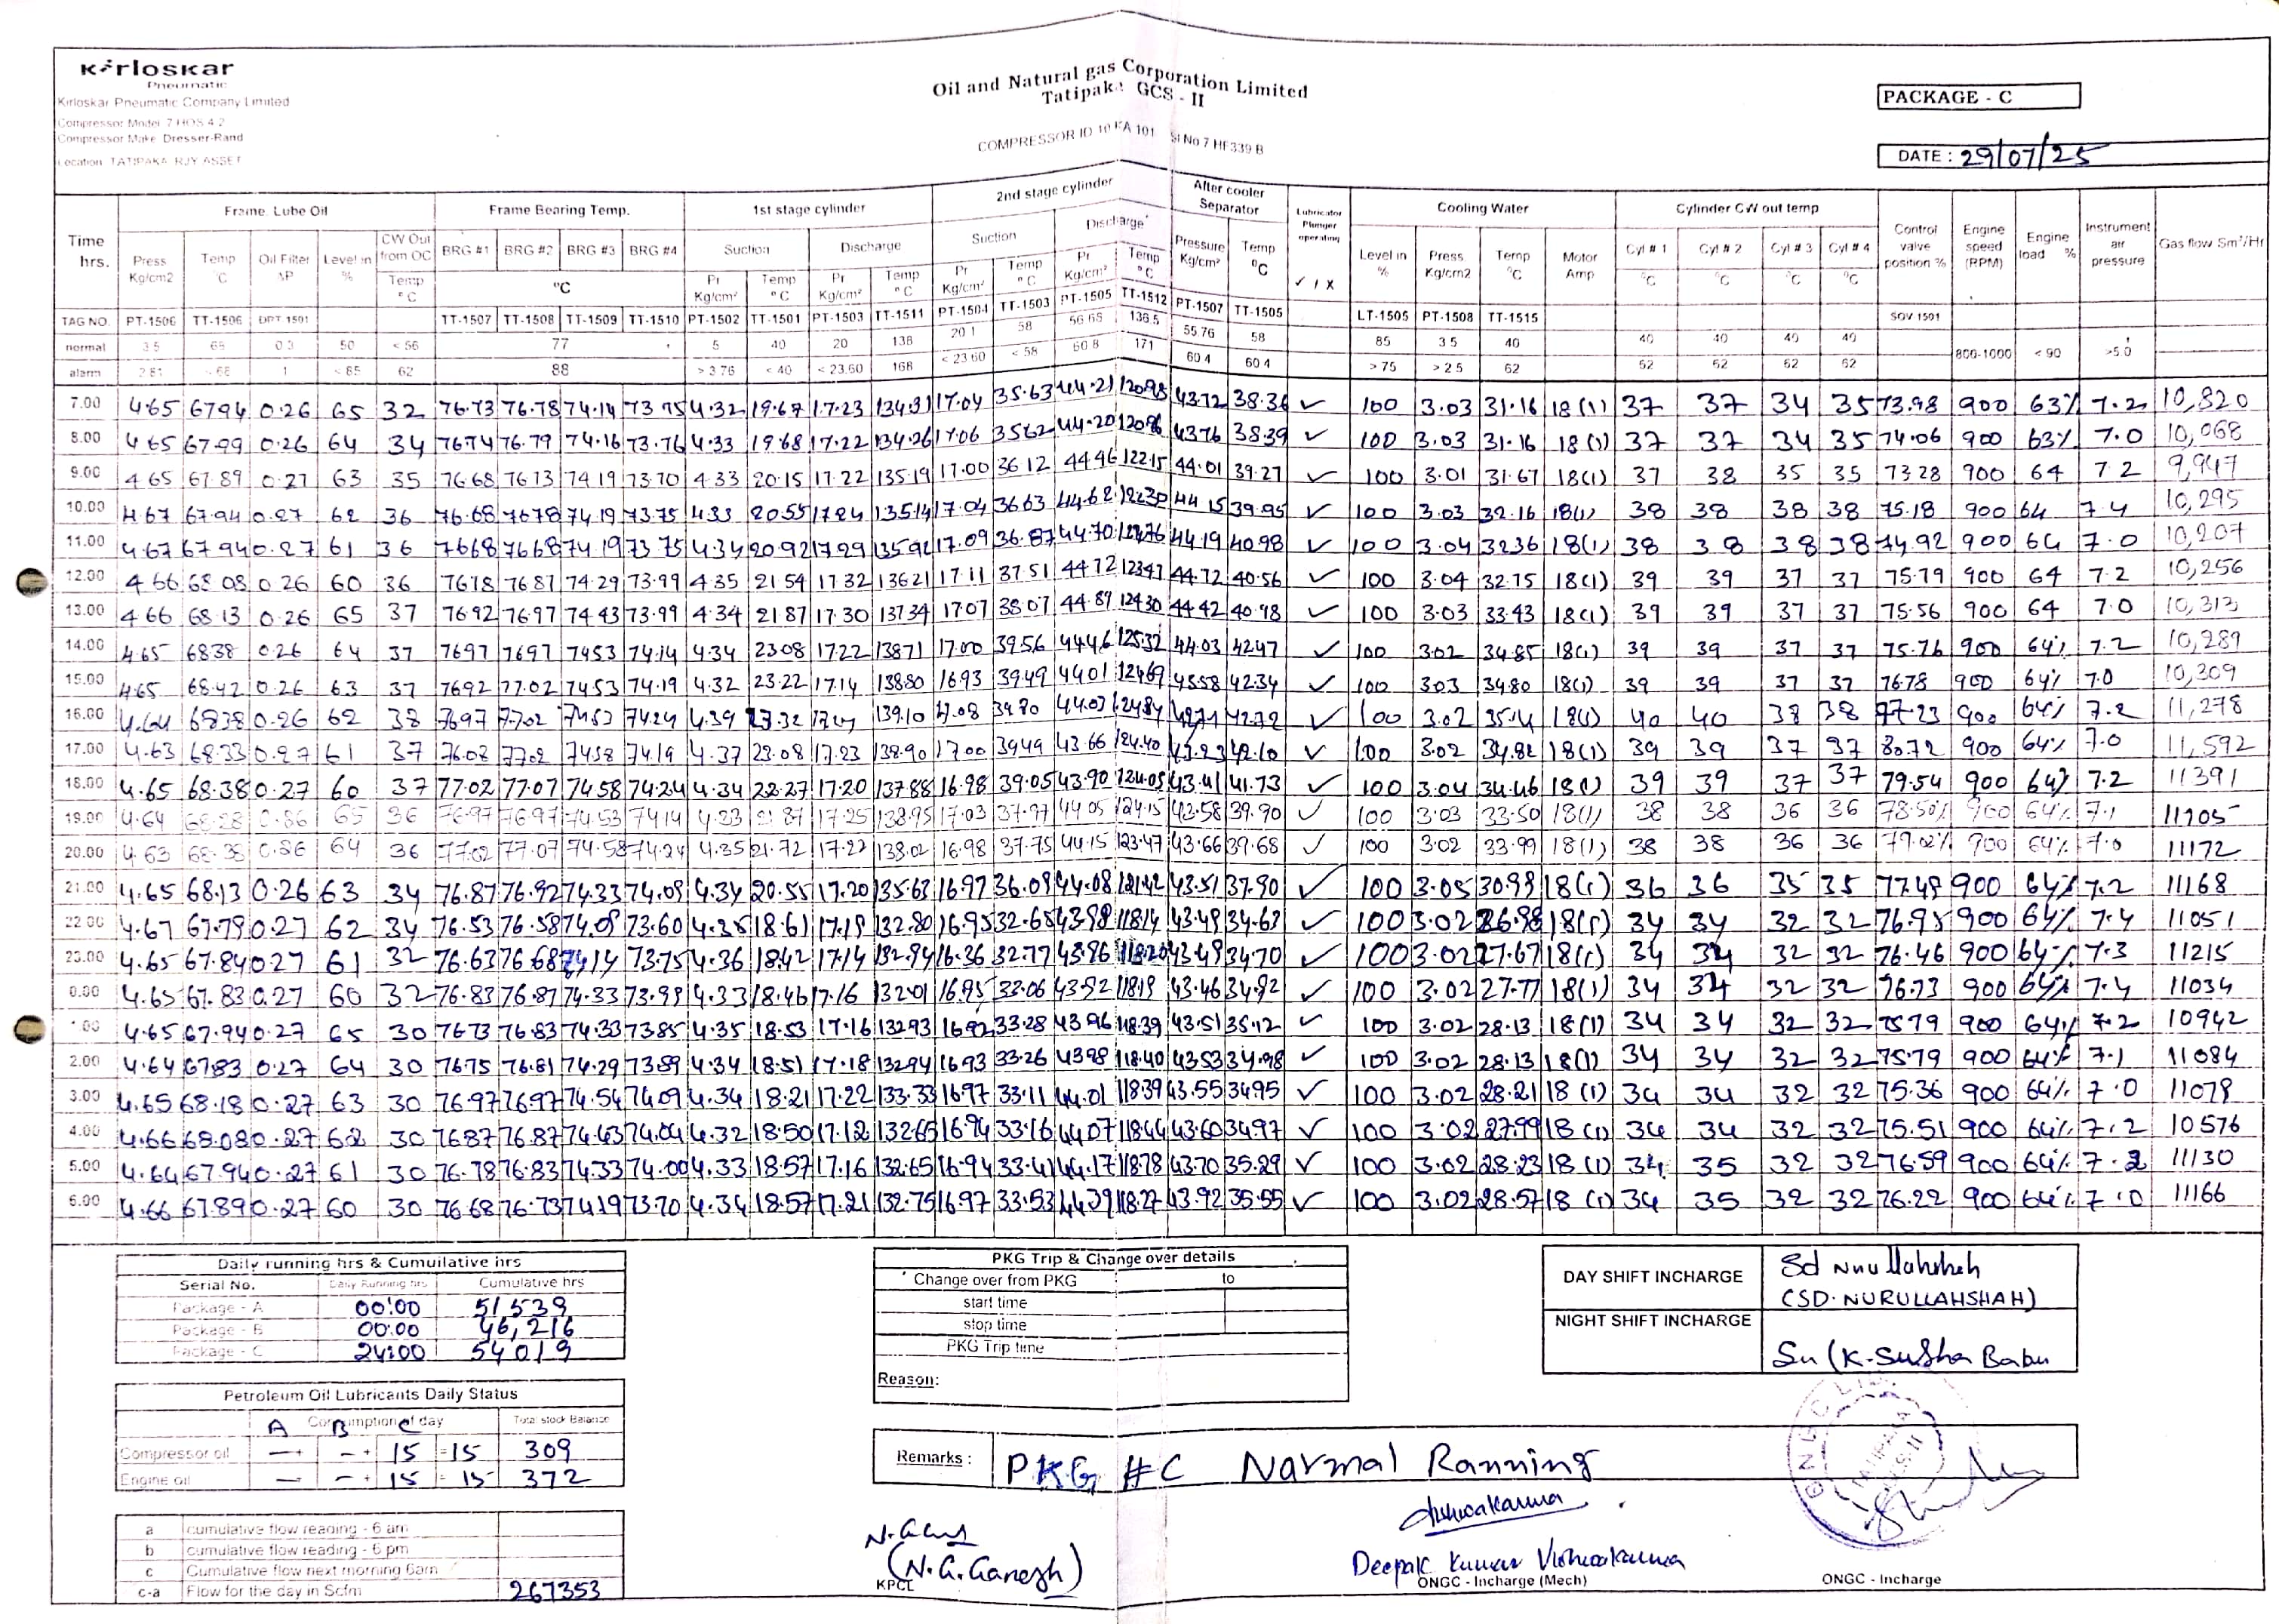 Kirloskar
Pneumatic
Kirloskar Pneumatic Company Limited
Compressor Model 7 HOS 4 2
Compressor Make Dresser-Rand
Location TATIPAKA RJY ASSET
Oil and Natural gas Corporation Limited
Tatipaka GCS - II
COMPRESSOR ID 10 KA 101 Sl No 7 HF339 B
PACKAGE - C
DATE : 29/07/25
Time hrs. Frame Lube Oil Frame Bearing Temp. 1st stage cylinder 2nd stage cylinder After cooler Separator Lubricator Plunger operating Cooling Water Cylinder CW out temp Control valve position % Engine speed (RPM) Engine load % Instrument air pressure Gas flow Sm³/Hr
Press Kg/cm2 Temp °C Oil Filter ΔP Level in % CW Out from OC Temp °C BRG #1 BRG #2 BRG #3 BRG #4 °C Suction Discharge Suction Discharge Pressure Kg/cm² Temp °C ✓ / X Level in % Press Kg/cm2 Temp °C Motor Amp Cyl # 1 °C Cyl # 2 °C Cyl # 3 °C Cyl # 4 °C
Pr Kg/cm² Temp °C Pr Kg/cm² Temp °C Pr Kg/cm² Temp °C Pr Kg/cm² Temp °C
TAG NO. PT-1506 TT-1506 DPT 1501 TT-1507 TT-1508 TT-1509 TT-1510 PT-1502 TT-1501 PT-1503 TT-1511 PT-1504 TT-1503 PT-1505 TT-1512 PT-1507 TT-1505 LT-1505 PT-1508 TT-1515 SOV 1501
normal 3.5 65 0.3 50 < 56 77 5 40 20 138 20 1 58 56 65 136.5 55.76 58 85 3 5 40 40 40 40 40 800-1000 < 90 >5.0
alarm 2 81 68 1 < 85 62 88 > 3 76 < 40 < 23.60 168 < 23 60 < 58 60 8 171 60 4 60 4 > 75 > 2 5 62 62 62 62 62
7.00 4.65 67.94 0.26 65 32 76.73 76.78 74.14 73.95 4.32 19.67 17.23 134.31 17.04 35.63 44.21 120.98 43.72 38.36 ✓ 100 3.03 31.16 18(1) 37 37 34 35 73.98 900 63% 7.2 10,820
8.00 4.65 67.99 0.26 64 34 76.74 76.79 74.16 73.76 4.33 19.68 17.22 134.26 17.06 35.62 44.20 120.96 43.76 38.39 ✓ 100 3.03 31.16 18(1) 37 37 34 35 74.06 900 63% 7.0 10,068
9.00 4.65 67.89 0.27 63 35 76.68 76.73 74.19 73.70 4.33 20.15 17.22 135.19 17.00 36.12 44.46 122.15 44.01 39.27 ✓ 100 3.01 31.67 18(1) 37 38 35 35 73.28 900 64 7.2 9,947
10.00 4.67 67.94 0.27 62 36 76.68 76.78 74.19 73.75 4.33 20.55 17.24 135.14 17.04 36.63 44.62 122.30 44.15 39.95 ✓ 100 3.03 32.16 18(1) 38 38 38 38 75.18 900 64 7.4 10,295
11.00 4.67 67.94 0.27 61 36 76.68 76.68 74.19 73.75 4.34 20.92 17.29 135.92 17.09 36.87 44.70 44.19 40.98 ✓ 100 3.04 32.36 18(1) 38 38 38 38 74.92 900 64 7.0 10,207
12.00 4.66 68.08 0.26 60 36 76.78 76.87 74.29 73.99 4.35 21.54 17.32 136.21 17.11 37.51 44.72 123.47 44.72 40.56 ✓ 100 3.04 32.75 18(1) 39 39 37 37 75.79 900 64 7.2 10,256
13.00 4.66 68.13 0.26 65 37 76.92 76.97 74.43 73.99 4.34 21.87 17.30 137.34 17.07 38.07 44.89 124.30 44.42 40.98 ✓ 100 3.03 33.43 18(1) 39 39 37 37 75.56 900 64 7.0 10,313
14.00 4.65 68.38 0.26 64 37 76.97 76.97 74.53 74.14 4.34 23.08 17.22 138.71 17.00 39.56 44.46 125.32 44.03 42.47 ✓ 100 3.02 34.85 18(1) 39 39 37 37 75.76 900 64% 7.2 10,289
15.00 4.65 68.42 0.26 63 37 76.92 77.02 74.53 74.19 4.32 23.22 17.14 138.80 16.93 39.49 44.01 124.69 43.58 42.34 ✓ 100 3.03 34.80 18(1) 39 39 37 37 76.78 900 64% 7.0 10,309
16.00 4.64 68.38 0.26 62 38 76.97 77.02 74.53 74.24 4.39 23.32 139.10 17.08 39.80 44.03 124.84 42.72 ✓ 100 3.02 35.14 18(1) 40 40 38 38 77.23 900 64% 7.2 11,278
17.00 4.63 68.33 0.27 61 37 76.02 77.02 74.58 74.19 4.37 23.08 17.23 138.90 17.00 39.49 43.66 124.40 43.23 42.10 ✓ 100 3.02 34.82 18(1) 39 39 37 37 80.72 900 64% 7.0 11,592
18.00 4.65 68.38 0.27 60 37 77.02 77.07 74.58 74.24 4.34 22.27 17.20 137.88 16.98 39.05 43.90 124.05 43.41 41.73 ✓ 100 3.04 34.46 18(1) 39 39 37 37 79.54 900 64% 7.2 11391
19.00 4.64 68.28 0.26 65 36 76.97 76.97 74.53 74.14 4.33 21.87 17.25 138.95 17.03 37.97 44.05 124.15 43.58 39.90 ✓ 100 3.03 33.50 18(1) 38 38 36 36 78.50% 900 64% 7.1 11205
20.00 4.63 68.38 0.26 64 36 77.02 77.07 74.58 74.24 4.35 21.72 17.22 138.02 16.98 37.75 44.15 123.47 43.66 39.68 ✓ 100 3.02 33.99 18(1) 38 38 36 36 79.02% 900 64% 7.0 11172
21.00 4.65 68.13 0.26 63 34 76.87 76.92 74.33 74.09 4.34 20.55 17.20 135.63 16.97 36.09 44.08 121.42 43.51 37.90 ✓ 100 3.05 30.98 18(1) 36 36 35 35 77.49 900 64% 7.2 11168
22.00 4.67 67.79 0.27 62 34 76.53 76.58 74.09 73.60 4.35 18.61 17.19 132.80 16.95 32.65 43.98 118.14 43.49 34.63 ✓ 100 3.02 26.98 18(1) 34 34 32 32 76.95 900 64% 7.4 11051
23.00 4.65 67.84 0.27 61 32 76.63 76.68 74.14 73.75 4.36 18.42 17.14 132.94 16.36 32.77 43.96 118.20 43.49 34.70 ✓ 100 3.02 27.67 18(1) 34 34 32 32 76.46 900 64% 7.3 11215
0.00 4.65 67.83 0.27 60 32 76.83 76.87 74.33 73.99 4.33 18.46 17.16 132.01 16.95 33.06 43.92 118.19 43.46 34.92 ✓ 100 3.02 27.77 18(1) 34 34 32 32 76.73 900 64% 7.4 11034
1.00 4.65 67.94 0.27 65 30 76.73 76.83 74.33 73.85 4.35 18.53 17.16 132.93 16.92 33.28 43.96 118.39 43.51 35.12 ✓ 100 3.02 28.13 18(1) 34 34 32 32 75.79 900 64% 7.2 10942
2.00 4.64 67.83 0.27 64 30 76.75 76.81 74.29 73.89 4.34 18.51 17.18 132.94 16.93 33.26 43.98 118.40 43.53 34.98 ✓ 100 3.02 28.13 18(1) 34 34 32 32 75.79 900 64% 7.1 11084
3.00 4.65 68.18 0.27 63 30 76.97 76.97 74.54 74.09 4.34 18.21 17.22 133.33 16.97 33.11 44.01 118.39 43.55 34.95 ✓ 100 3.02 28.21 18 (1) 34 34 32 32 75.36 900 64% 7.0 11079
4.00 4.66 68.08 0.27 62 30 76.87 76.87 74.43 74.04 4.32 18.50 17.12 132.65 16.94 33.16 44.07 118.44 43.60 34.97 ✓ 100 3.02 27.99 18 (1) 34 34 32 32 75.51 900 64% 7.2 10576
5.00 4.64 67.94 0.27 61 30 76.78 76.83 74.33 74.00 4.33 18.57 17.16 132.65 16.94 33.41 44.17 118.78 43.70 35.29 ✓ 100 3.02 28.23 18 (1) 34 35 32 32 76.59 900 64% 7.2 11130
6.00 4.66 67.89 0.27 60 30 76.68 76.73 74.19 73.70 4.34 18.57 17.21 132.75 16.97 33.53 44.39 118.27 43.92 35.55 ✓ 100 3.02 28.57 18 (1) 34 35 32 32 76.22 900 64% 7.0 11166
Daily running hrs & Cumulative hrs
Serial No. Daily Running hrs Cumulative hrs
Package - A 00:00 51,539
Package - B 00.00 46,216
Package - C 24:00 54019
Petroleum Oil Lubricants Daily Status
Consumption of day Total stock Balance
A B C
Compressor oil — + - + 15 = 15 309
Engine oil — - + 15 = 15 372
a cumulative flow reading - 6 am
b cumulative flow reading - 6 pm
c Cumulative flow next morning 6am
c-a Flow for the day in Scfm 267353
PKG Trip & Change over details
Change over from PKG to
start time
stop time
PKG Trip time
Reason:
DAY SHIFT INCHARGE Sd Nurullahshah
(SD. NURULLAHSHAH)
NIGHT SHIFT INCHARGE
(K. Susha Babu
Remarks : PKG #C Narmal Ranning
N. Ganesh
(N.G.Ganesh)
KPCL
Vishwakarma
Deepak Kumar Vishwakarma
ONGC - Incharge (Mech)
ONGC - Incharge